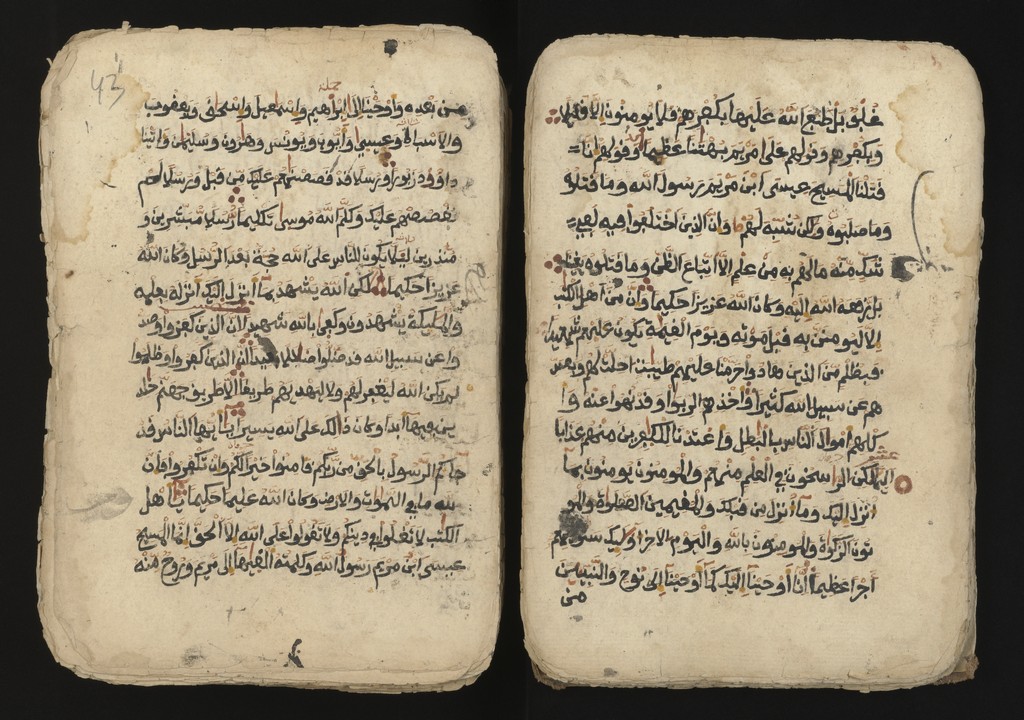 غلف بل طبع الله عليها بكفرهم فلا يومنون الا قليلا
وبكفرهم وقولهم على مريم بهتنا عظيما وقولهم انا
قتلنا المسيح عيسى ابن مريم رسول الله وما قتلوه
وما صلبوه ولكن شبه لهم وان الذين اختلفوا فيه لفي
شك منه مالهم به من علم الا اتباع الظن وما قتلوه يقينا
بل رفعه الله اليه وكان الله عزيزا حكيما وان من اهل الكتب
الا ليومنن به قبل موته ويوم القيمة يكون عليهم شهيدا
فبظلم من الذين هادوا حرمنا عليهم طيبت احلت لهم وبصد
هم عن سبيل الله كثيرا واخذهم الربوا وقد نهوا عنه وا
كلهم اموال الناس بالبطل واعتدنا للكفرين منهم عذابا
اليما لكن الراسخون في العلم منهم والمومنون يومنون بما
انزل اليك وما انزل من قبلك والمقيمين الصلوة والمو
تون الزكوة والمومنون بالله واليوم الاخر اوليك سنوتيهم
اجرا عظيما انا اوحينا اليك كما اوحينا الى نوح والنبيين
من
43
من بعده واوحينا الى ابراهيم واسمعيل واسحق ويعقوب
والاسباط وعيسى وايوب ويونس وهرون وسليمن واتينا
داوود زبورا ورسلا قد قصصنهم عليك من قبل ورسلا لم
نقصصهم عليك وكلم الله موسى تكليما رسلا مبشرين و
منذرين ليلا يكون للناس على الله حجة بعد الرسل وكان الله
عزيزا حكيما لكن الله يشهد بما انزل اليك انزله بعلمه
والمليكة يشهدون وكفى بالله شهيدا ان الذين كفروا وصد
وا عن سبيل الله قد ضلوا ضللا بعيدا ان الذين كفروا وظلموا
لم يكن الله ليغفر لهم ولا ليهديهم طريقا الا طريق جهنم خلد
ين فيها ابدا وكان ذالك على الله يسيرا يايها الناس قد
جاكم الرسول بالحق من ربكم فامنوا خيرا لكم وان تكفروا فان
لله ما في السموت والارض وكان الله عليما حكيما يا اهل
الكتب لا تغلوا في دينكم ولا تقولوا على الله الا الحق انما المسيح
عيسى ابن مريم رسول الله وكلمته القيها الى مريم وروح منه